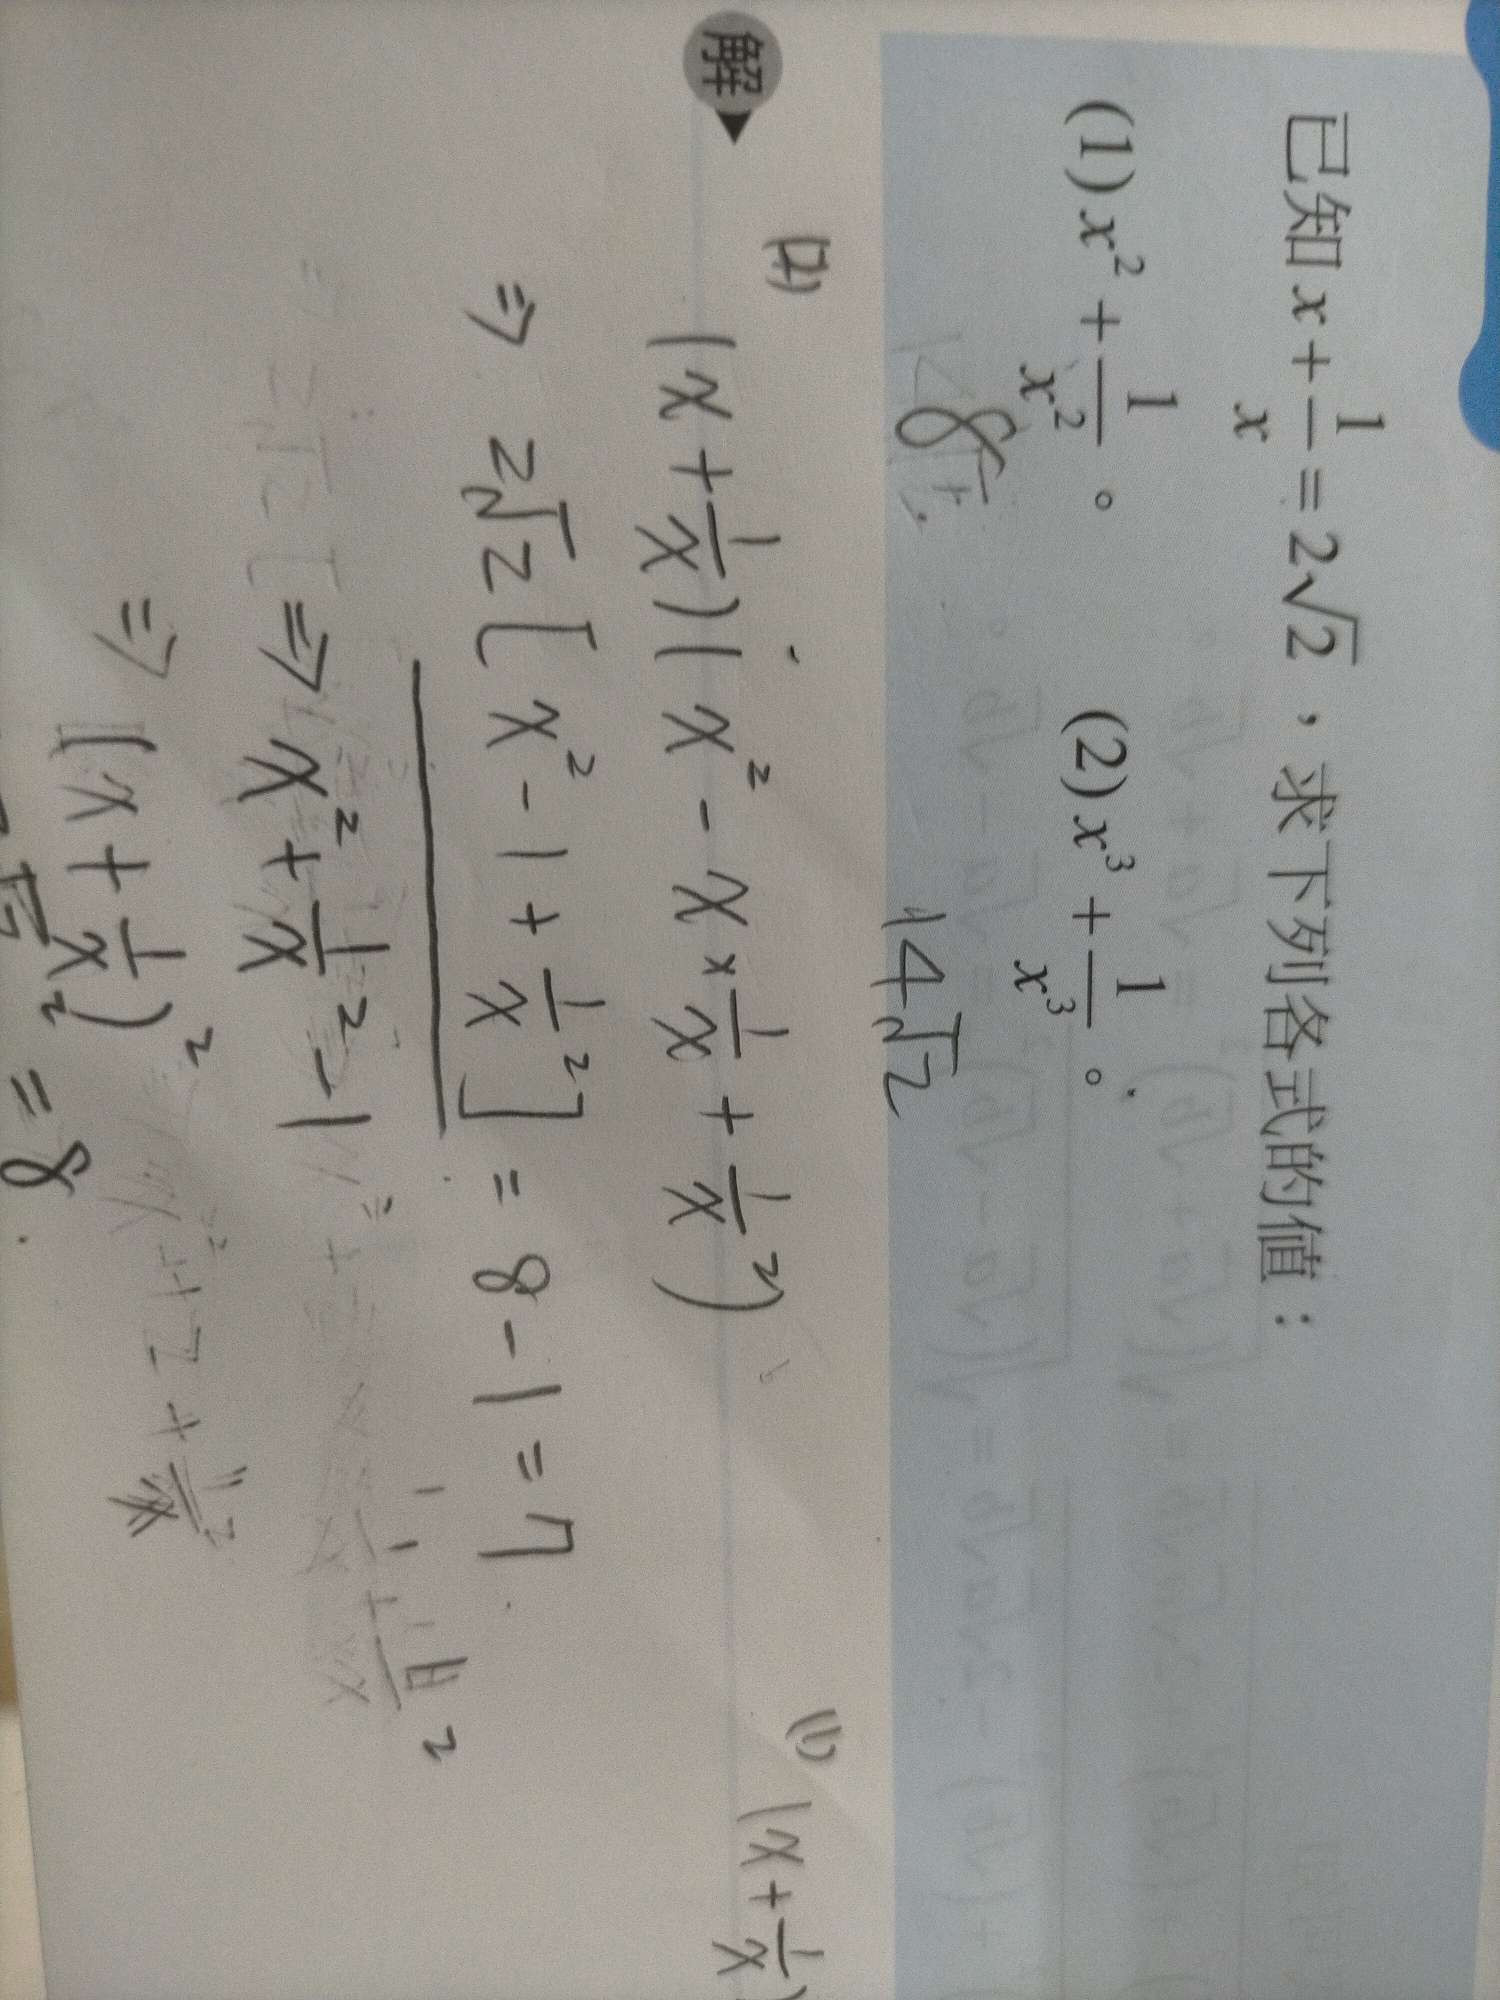 已知 x + 1/x = 2√2，求下列各式的值：
(1) x² + 1/x²。 (2) x³ + 1/x³。
8 14√2
解
(2) (1)
(x + 1/x)(x² - x × 1/x + 1/x²) (x + 1/x)
⇒ 2√2 [x² - 1 + 1/x²] = 8 - 1 = 7
⇒ x² + 1/x² - 1
⇒ (x + 1/x)² x² + 2 + 1/x²
= 8